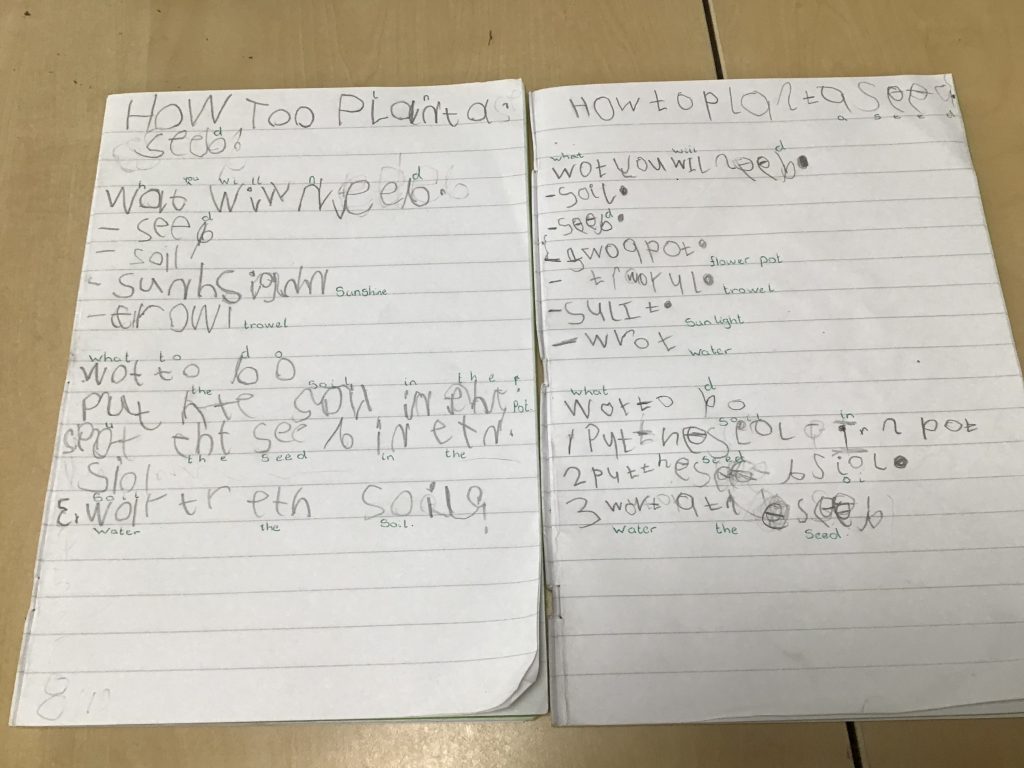 HOW TOO Planta
seed!
you will
wat will Need.
- seed
- soil
- sunhsighn
Sunshine
- trowl
trowel
what to d
wot to bo
the soil in the p
PUT hte soil in eht
Pot.
spot eht seeb in etn.
the seed in the
Siol
3. woirtr eth soil
water the Soil.
HOW to plant a seed
a seed
what will d
wot you WIL neeb.
- soil.
- seeb.
d
- gwoqpot.
flower pot
- trworyl.
trowel
- SYLIt.
Sun light
- wrot
water
what d
Wot to bo
soil in
1 Pyt the SEOL in pot
seed
2 pyt the siol.
oi
3 worto ath seeb
water the Seed.